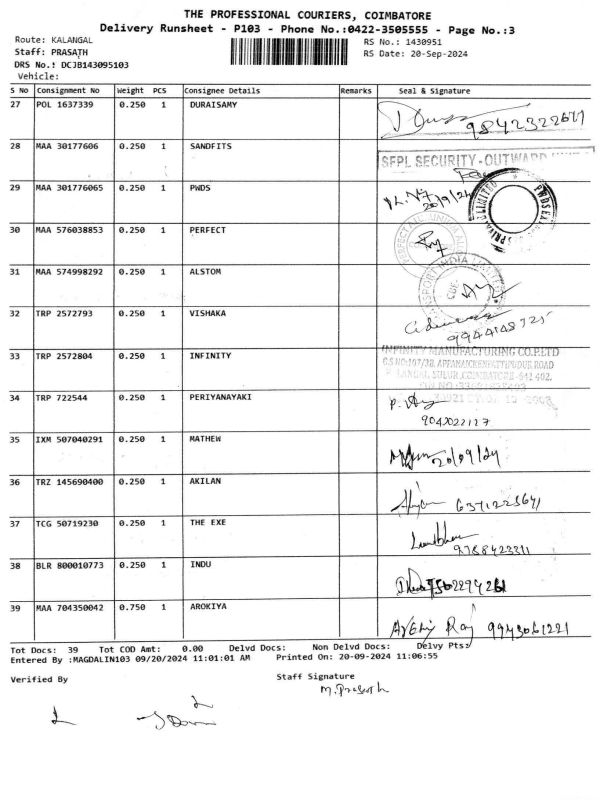 THE PROFESSIONAL COURIERS, COIMBATORE
Delivery Runsheet - P103 - Phone No.:0422-3505555 - Page No.:3
Route: KALANGAL RS No.: 1430951
Staff: PRASATH RS Date: 20-Sep-2024
DRS No.: DCJB143095103
Vehicle:
S No Consignment No Weight PCS Consignee Details Remarks Seal & Signature
27 POL 1637339 0.250 1 DURAISAMY
28 MAA 30177606 0.250 1 SANDFITS
SFPL SECURITY-OUTWARD
29 MAA 301776065 0.250 1 PWDS
20/9/24
30 MAA 576038853 0.250 1 PERFECT
31 MAA 574998292 0.250 1 ALSTOM
32 TRP 2572793 0.250 1 VISHAKA
33 TRP 2572804 0.250 1 INFINITY
INFINITY MANUFACTURING CO.P.LTD
34 TRP 722544 0.250 1 PERIYANAYAKI
9042022127
35 IXM 507040291 0.250 1 MATHEW
20/09/24
36 TRZ 145690400 0.250 1 AKILAN
37 TCG 50719230 0.250 1 THE EXE
9788423311
38 BLR 800010773 0.250 1 INDU
39 MAA 704350042 0.750 1 AROKIYA
Raj 9943061221
Tot Docs: 39 Tot COD Amt: 0.00 Delvd Docs: Non Delvd Docs: Delvy Pts:
Entered By :MAGDALIN103 09/20/2024 11:01:01 AM Printed On: 20-09-2024 11:06:55
Verified By Staff Signature
M. Prasath